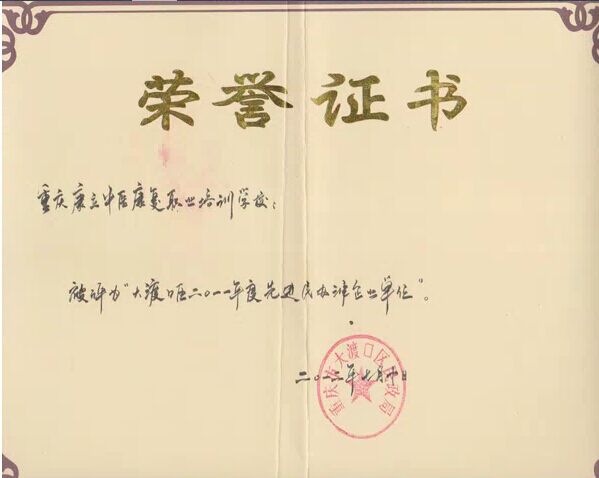 荣誉证书
重庆康立中医康复职业培训学校：
被评为“大渡口区二〇一一年度先进民办非企业单位”。
重庆市大渡口区民政局
二〇一二年七月十日